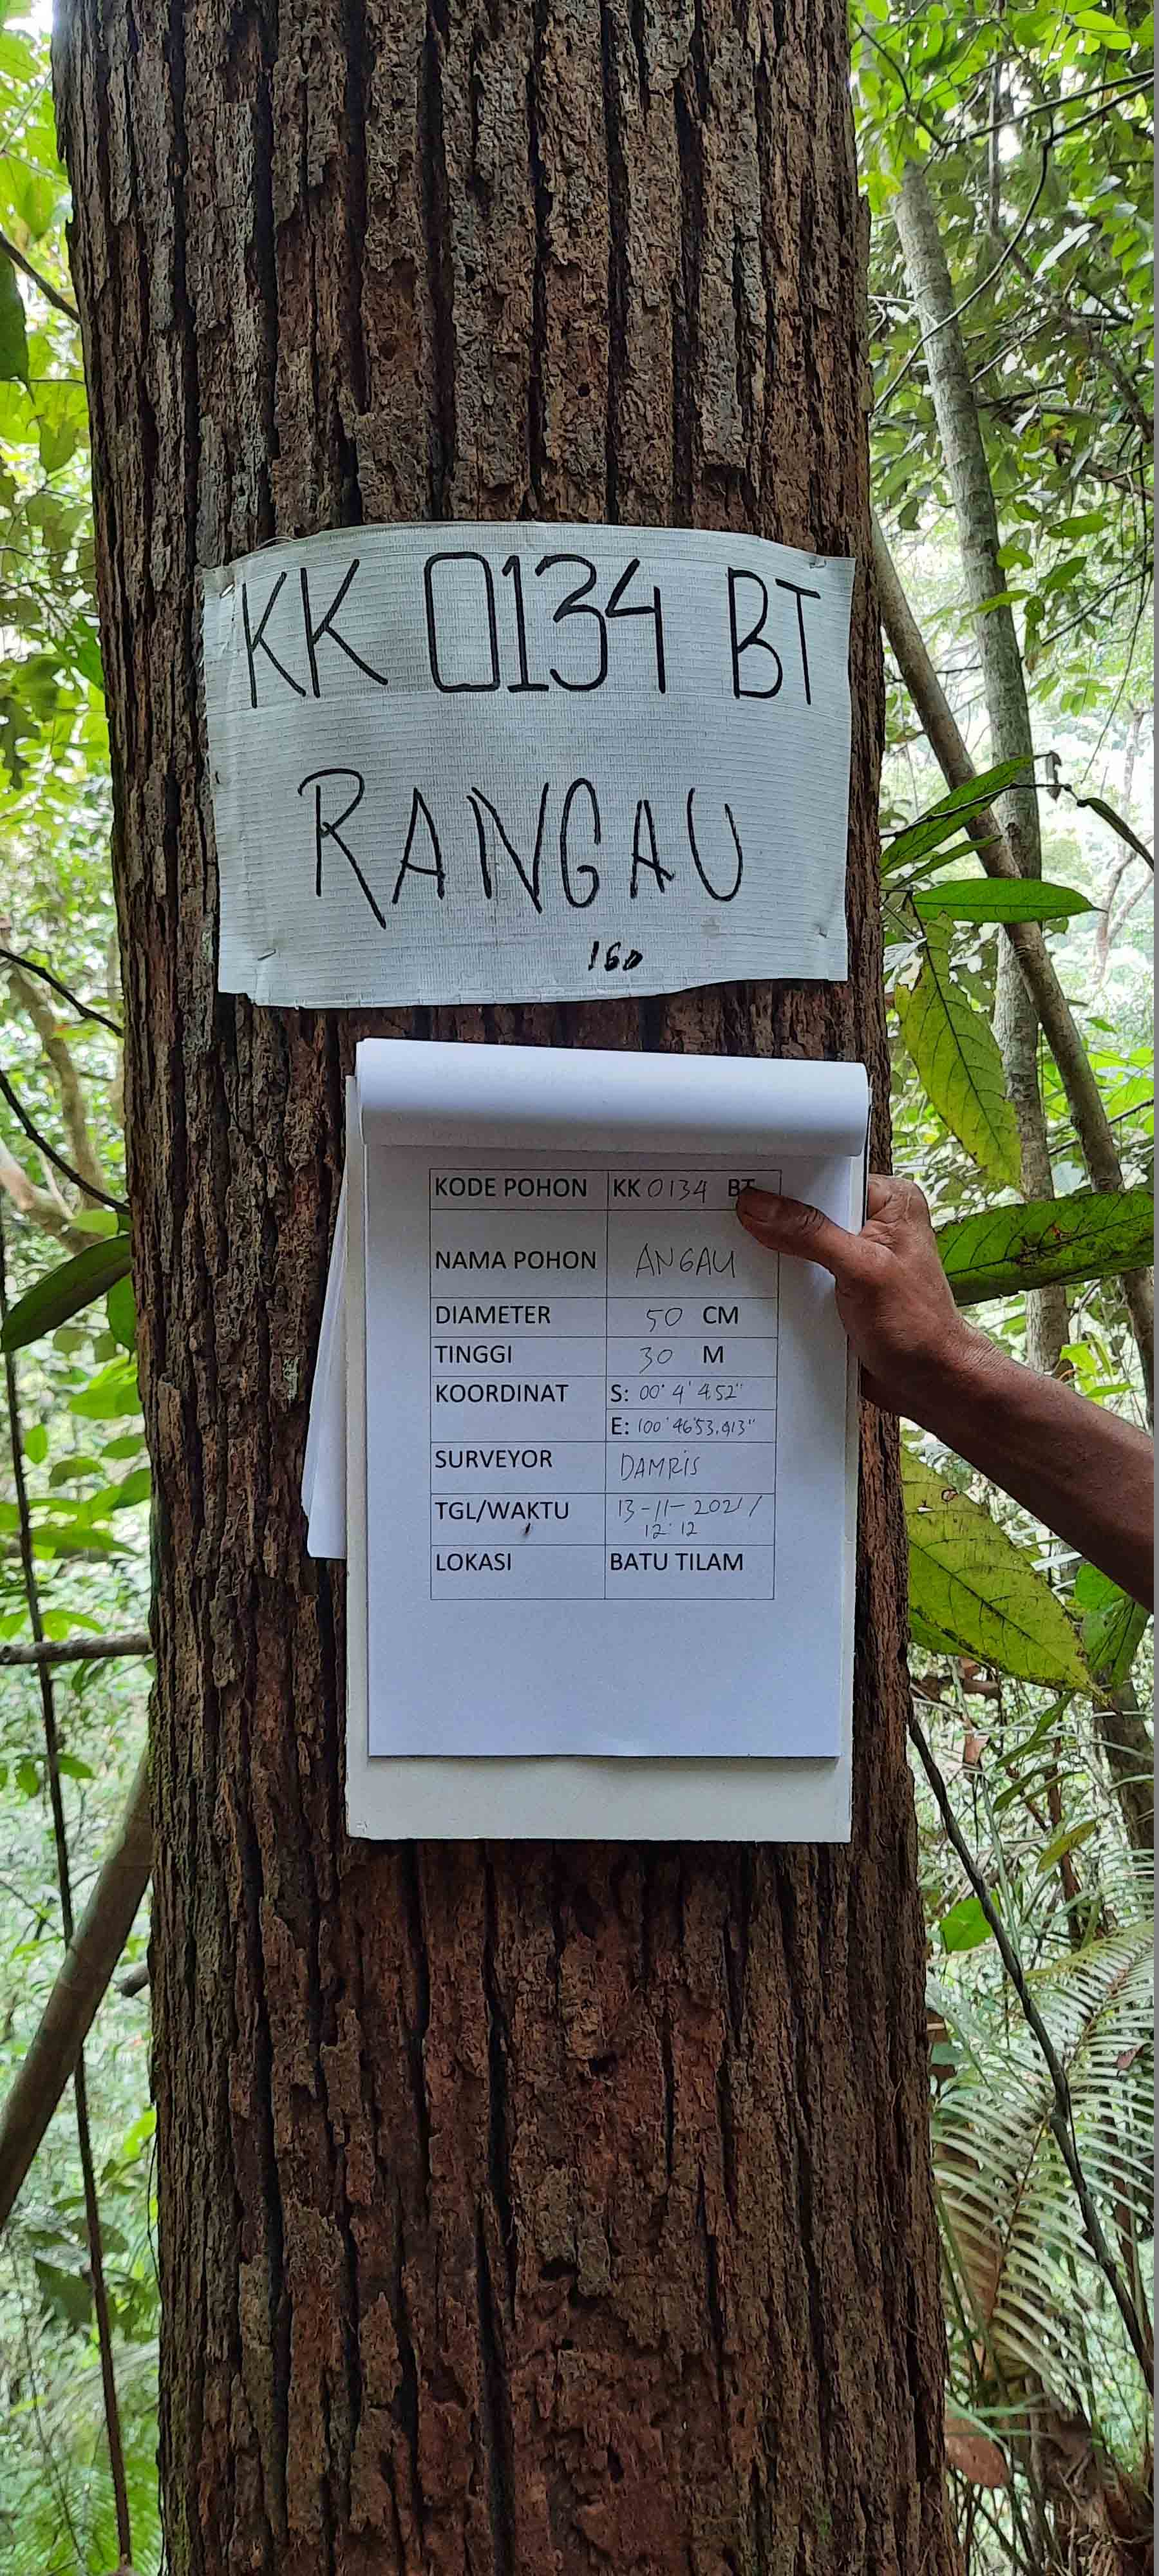 KK 0134 BT
RANGAU
160
KODE POHON KK 0134 BT
NAMA POHON ANGAU
DIAMETER 50 CM
TINGGI 30 M
KOORDINAT S: 00° 4' 4.52"
E: 100° 46'53.913"
SURVEYOR DAMRIS
TGL/WAKTU 13-11-2021/
12:12
LOKASI BATU TILAM